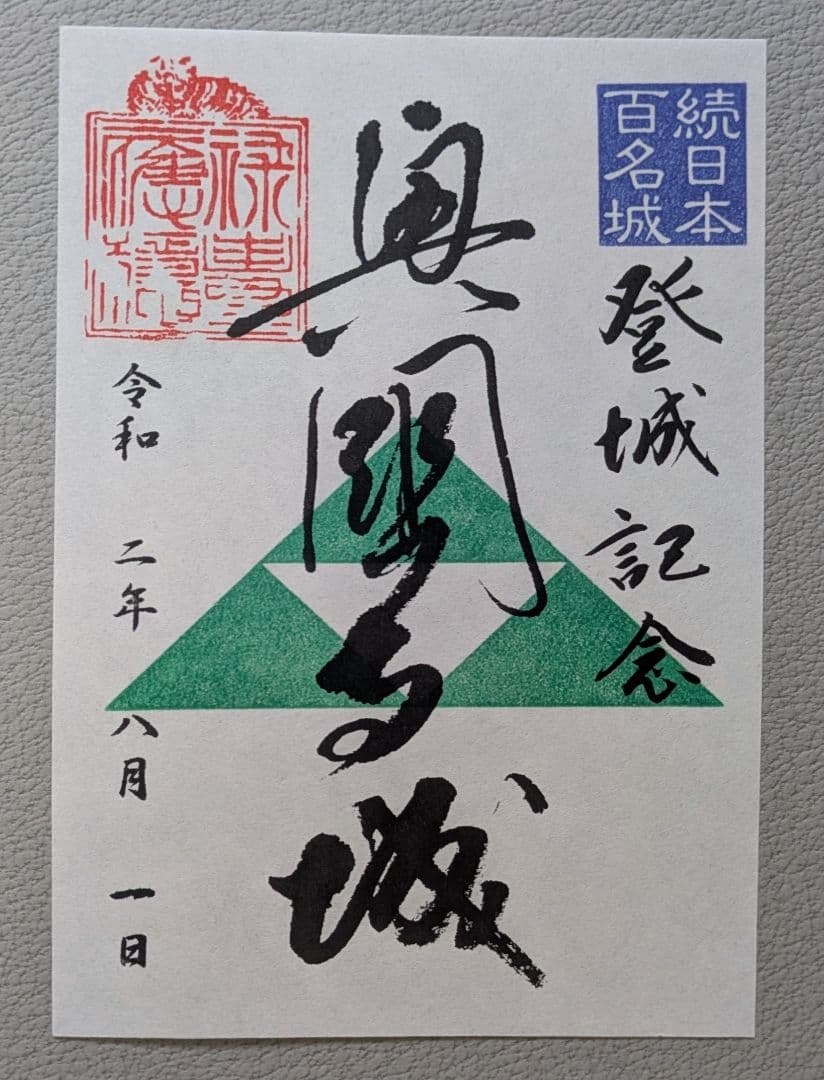 続日本
百名城
登城記念
興國寺城
祿壽
應穏
令和 二年 八月 一日